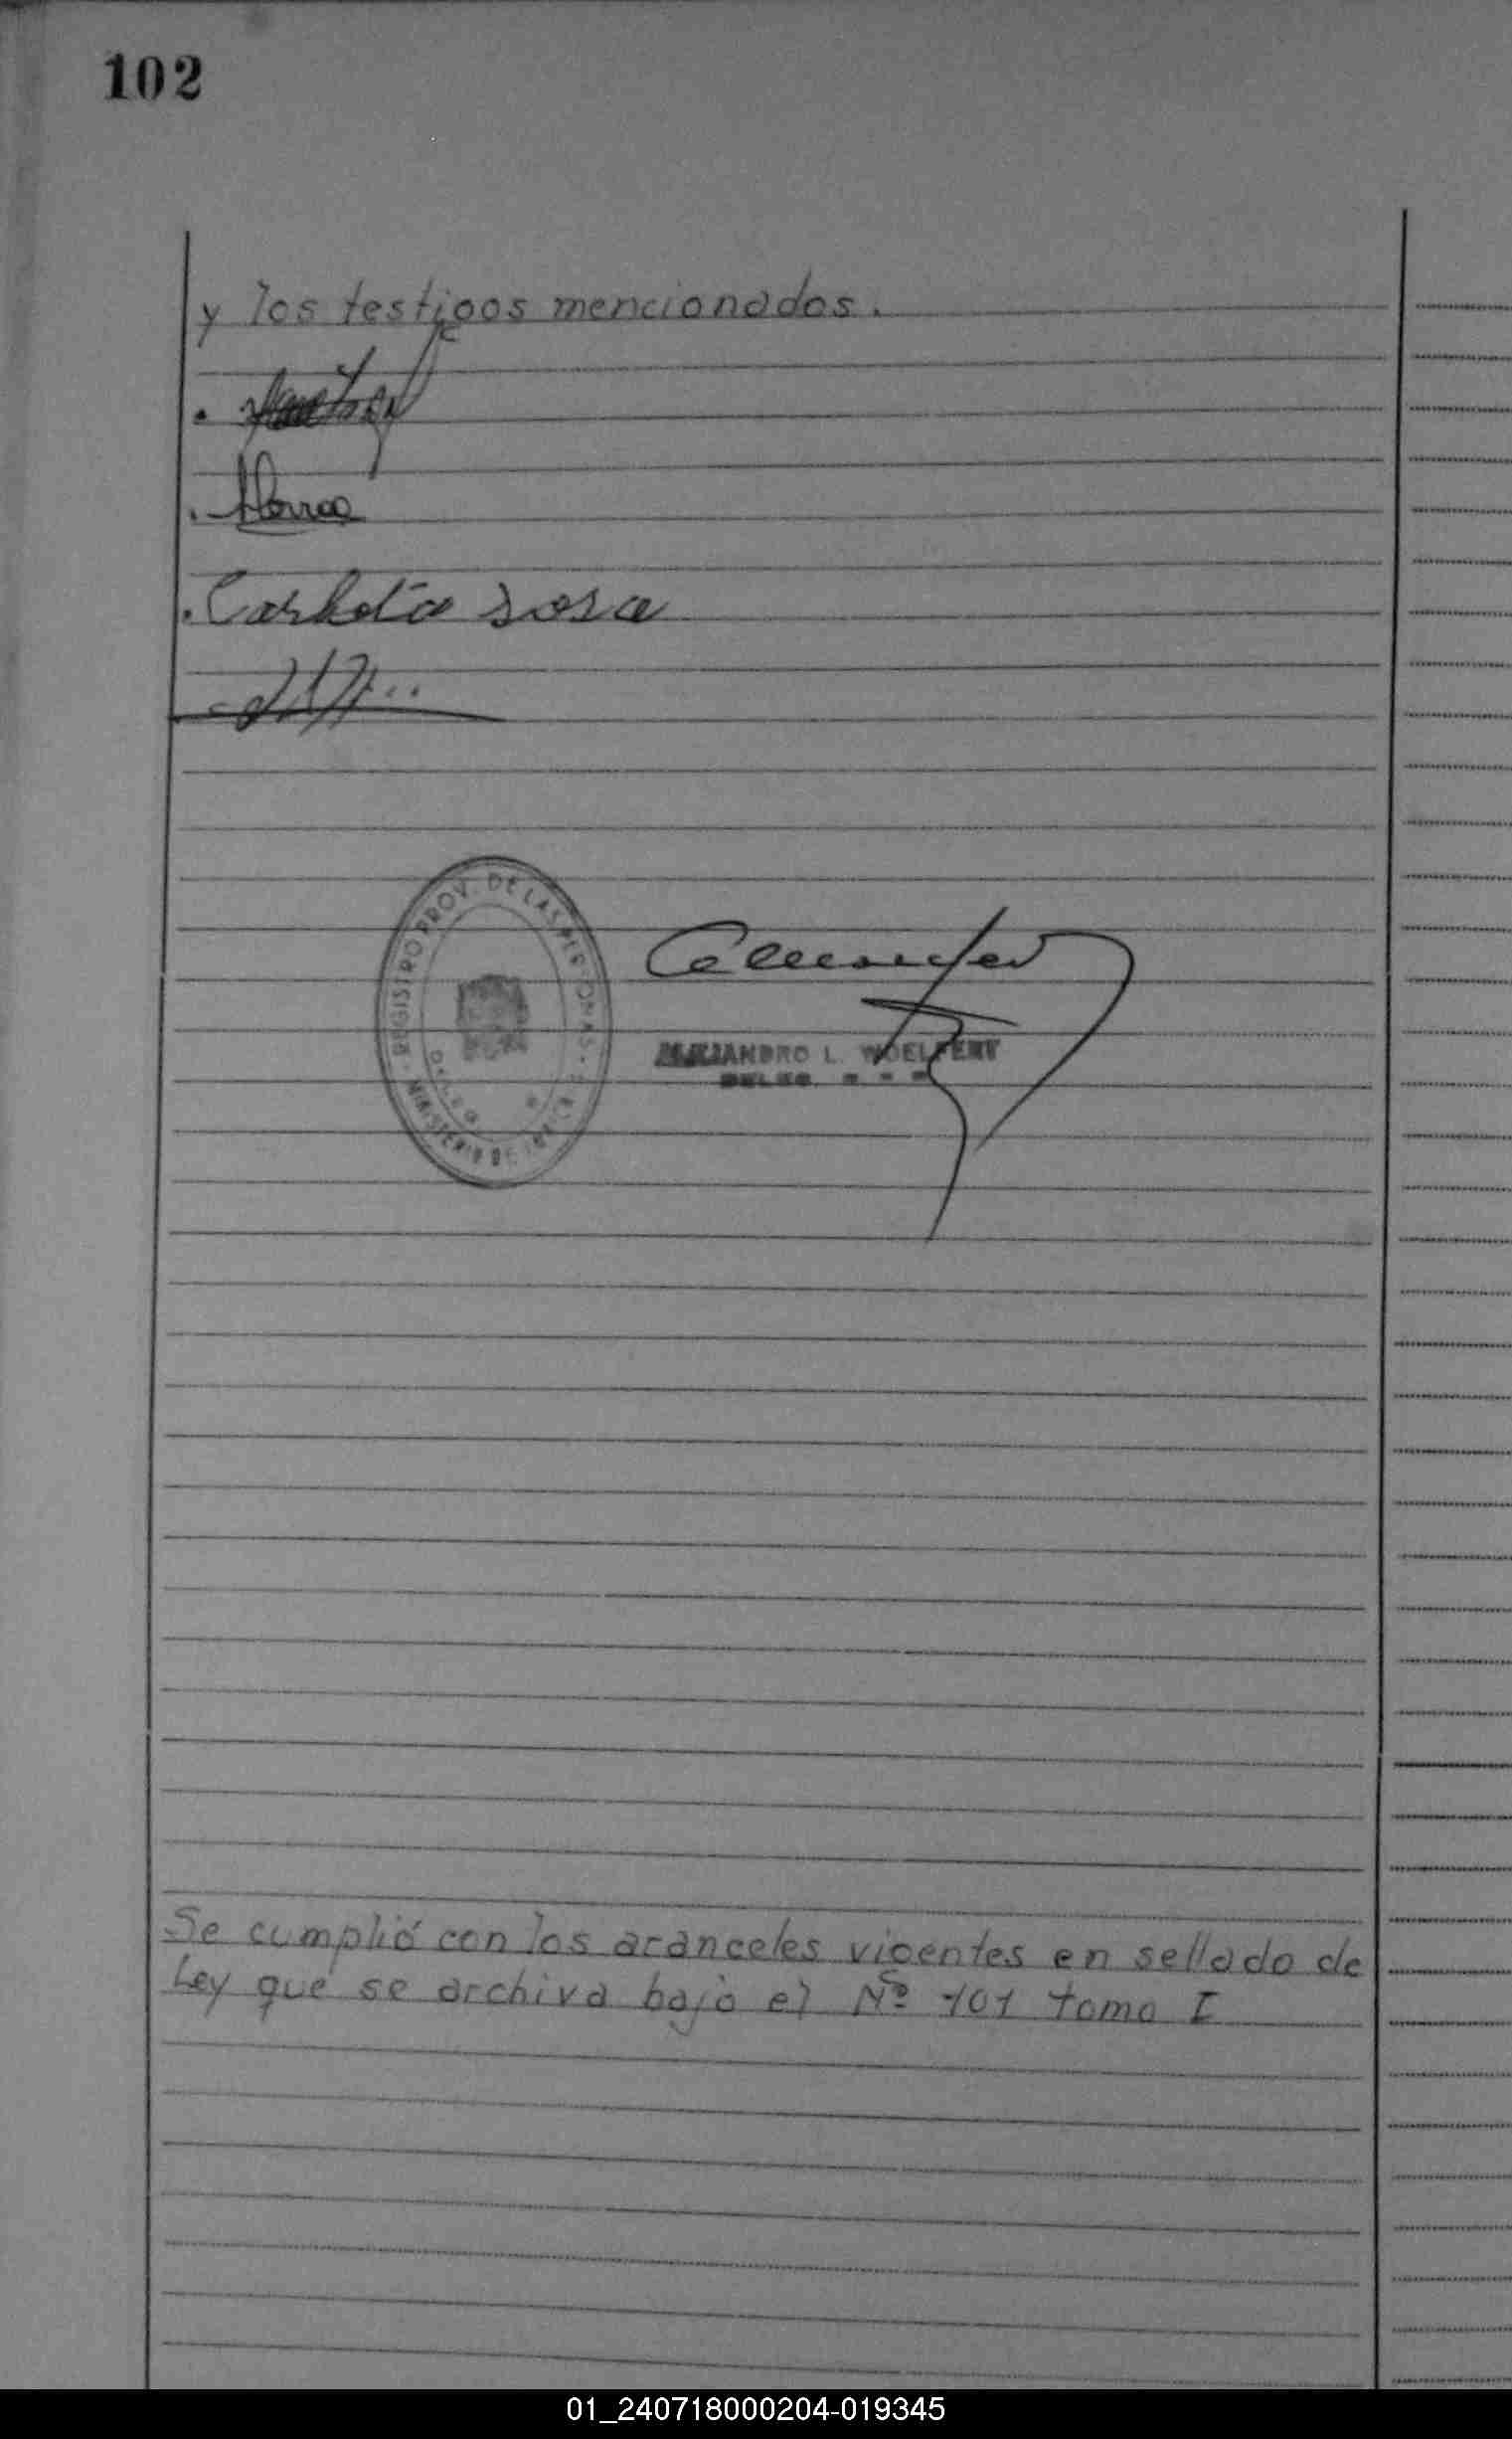 102
y los testigos mencionados.
Carlota Sosa
REGISTRO PROV. DE LAS PERSONAS
MINISTERIO DE
ALEJANDRO L. WOELFERT
Se cumplió con los aranceles vigentes en sellado de
Ley que se archiva bajo el Nº 101 tomo I
01_240718000204-019345